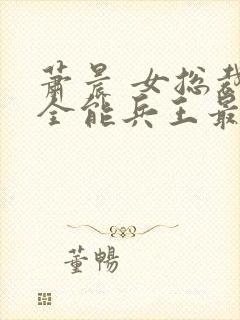 萧晨 女总裁
全能兵王最
董暢